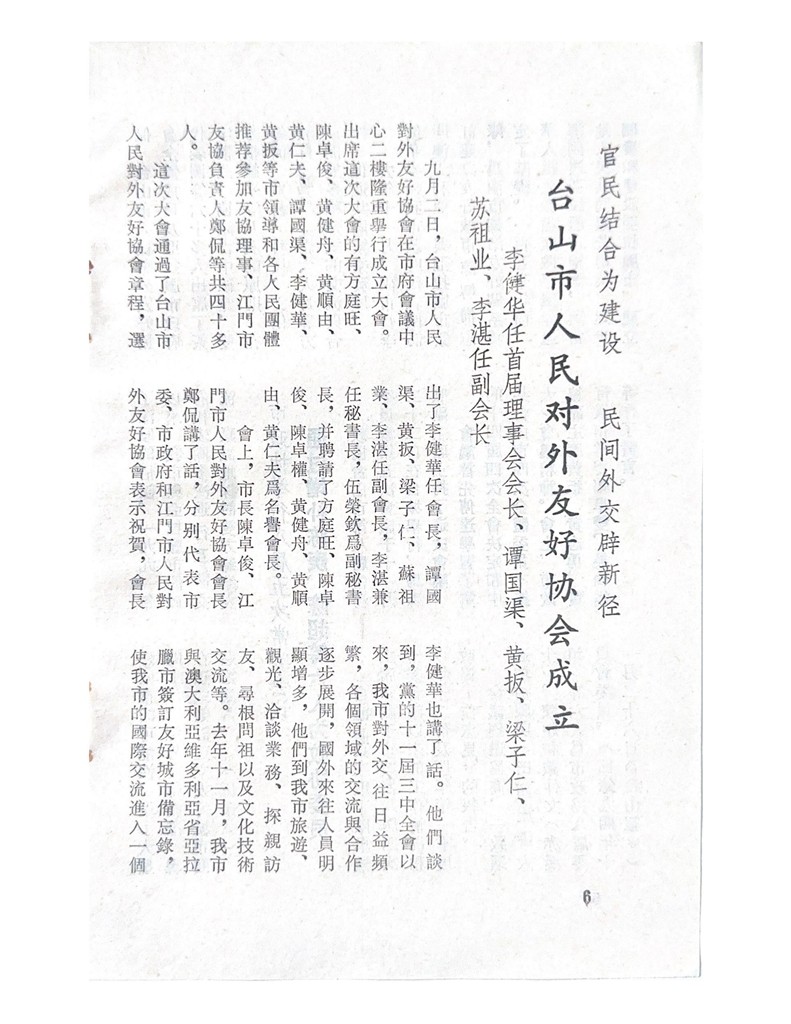 官民结合为建设　民间外交辟新径
台山市人民对外友好协会成立
李健华任首届理事会会长、谭国渠、黄扳、梁子仁、
苏祖业、李湛任副会长
九月二日，台山市人民
對外友好協會在市府會議中
心二樓隆重舉行成立大會。
出席這次大會的有方庭旺、
陳卓俊、黄健舟、黄順由、
黄仁夫、譚國渠、李健華、
黄扳等市領導和各人民團體
推荐參加友協理事、江門市
友協負責人鄭侃等共四十多
人。
這次大會通過了台山市
人民對外友好協會章程，選
出了李健華任會長，譚國
渠、黄扳、梁子仁、蘇祖
業、李湛任副會長，李湛兼
任秘書長，伍榮欽爲副秘書
長，并聘請了方庭旺、陳卓
俊、陳卓權、黄健舟、黄順
由、黄仁夫爲名譽會長。
會上，市長陳卓俊、江
門市人民對外友好協會會長
鄭侃講了話，分别代表市
委、市政府和江門市人民對
外友好協會表示祝賀，會長
李健華也講了話。他們談
到，黨的十一屆三中全會以
來，我市對外交往日益頻
繁，各個領域的交流與合作
逐步展開，國外來往人員明
顯增多，他們到我市旅遊、
觀光、洽談業務、探親訪
友、尋根問祖以及文化技術
交流等。去年十一月，我市
與澳大利亞維多利亞省亞拉
臘市簽訂友好城市備忘錄，
使我市的國際交流進入一個
6